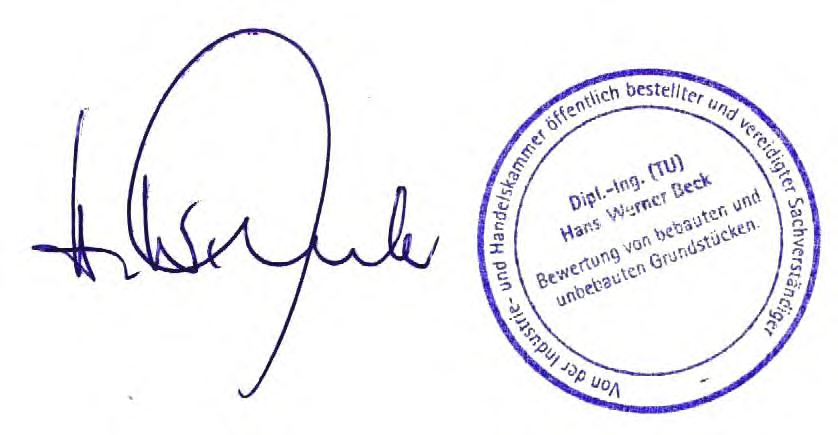 Von der Industrie- und Handelskammer öffentlich bestellter und vereidigter Sachverständiger
Dipl.-Ing. (TU)
Hans Werner Beck
Bewertung von bebauten und
unbebauten Grundstücken.